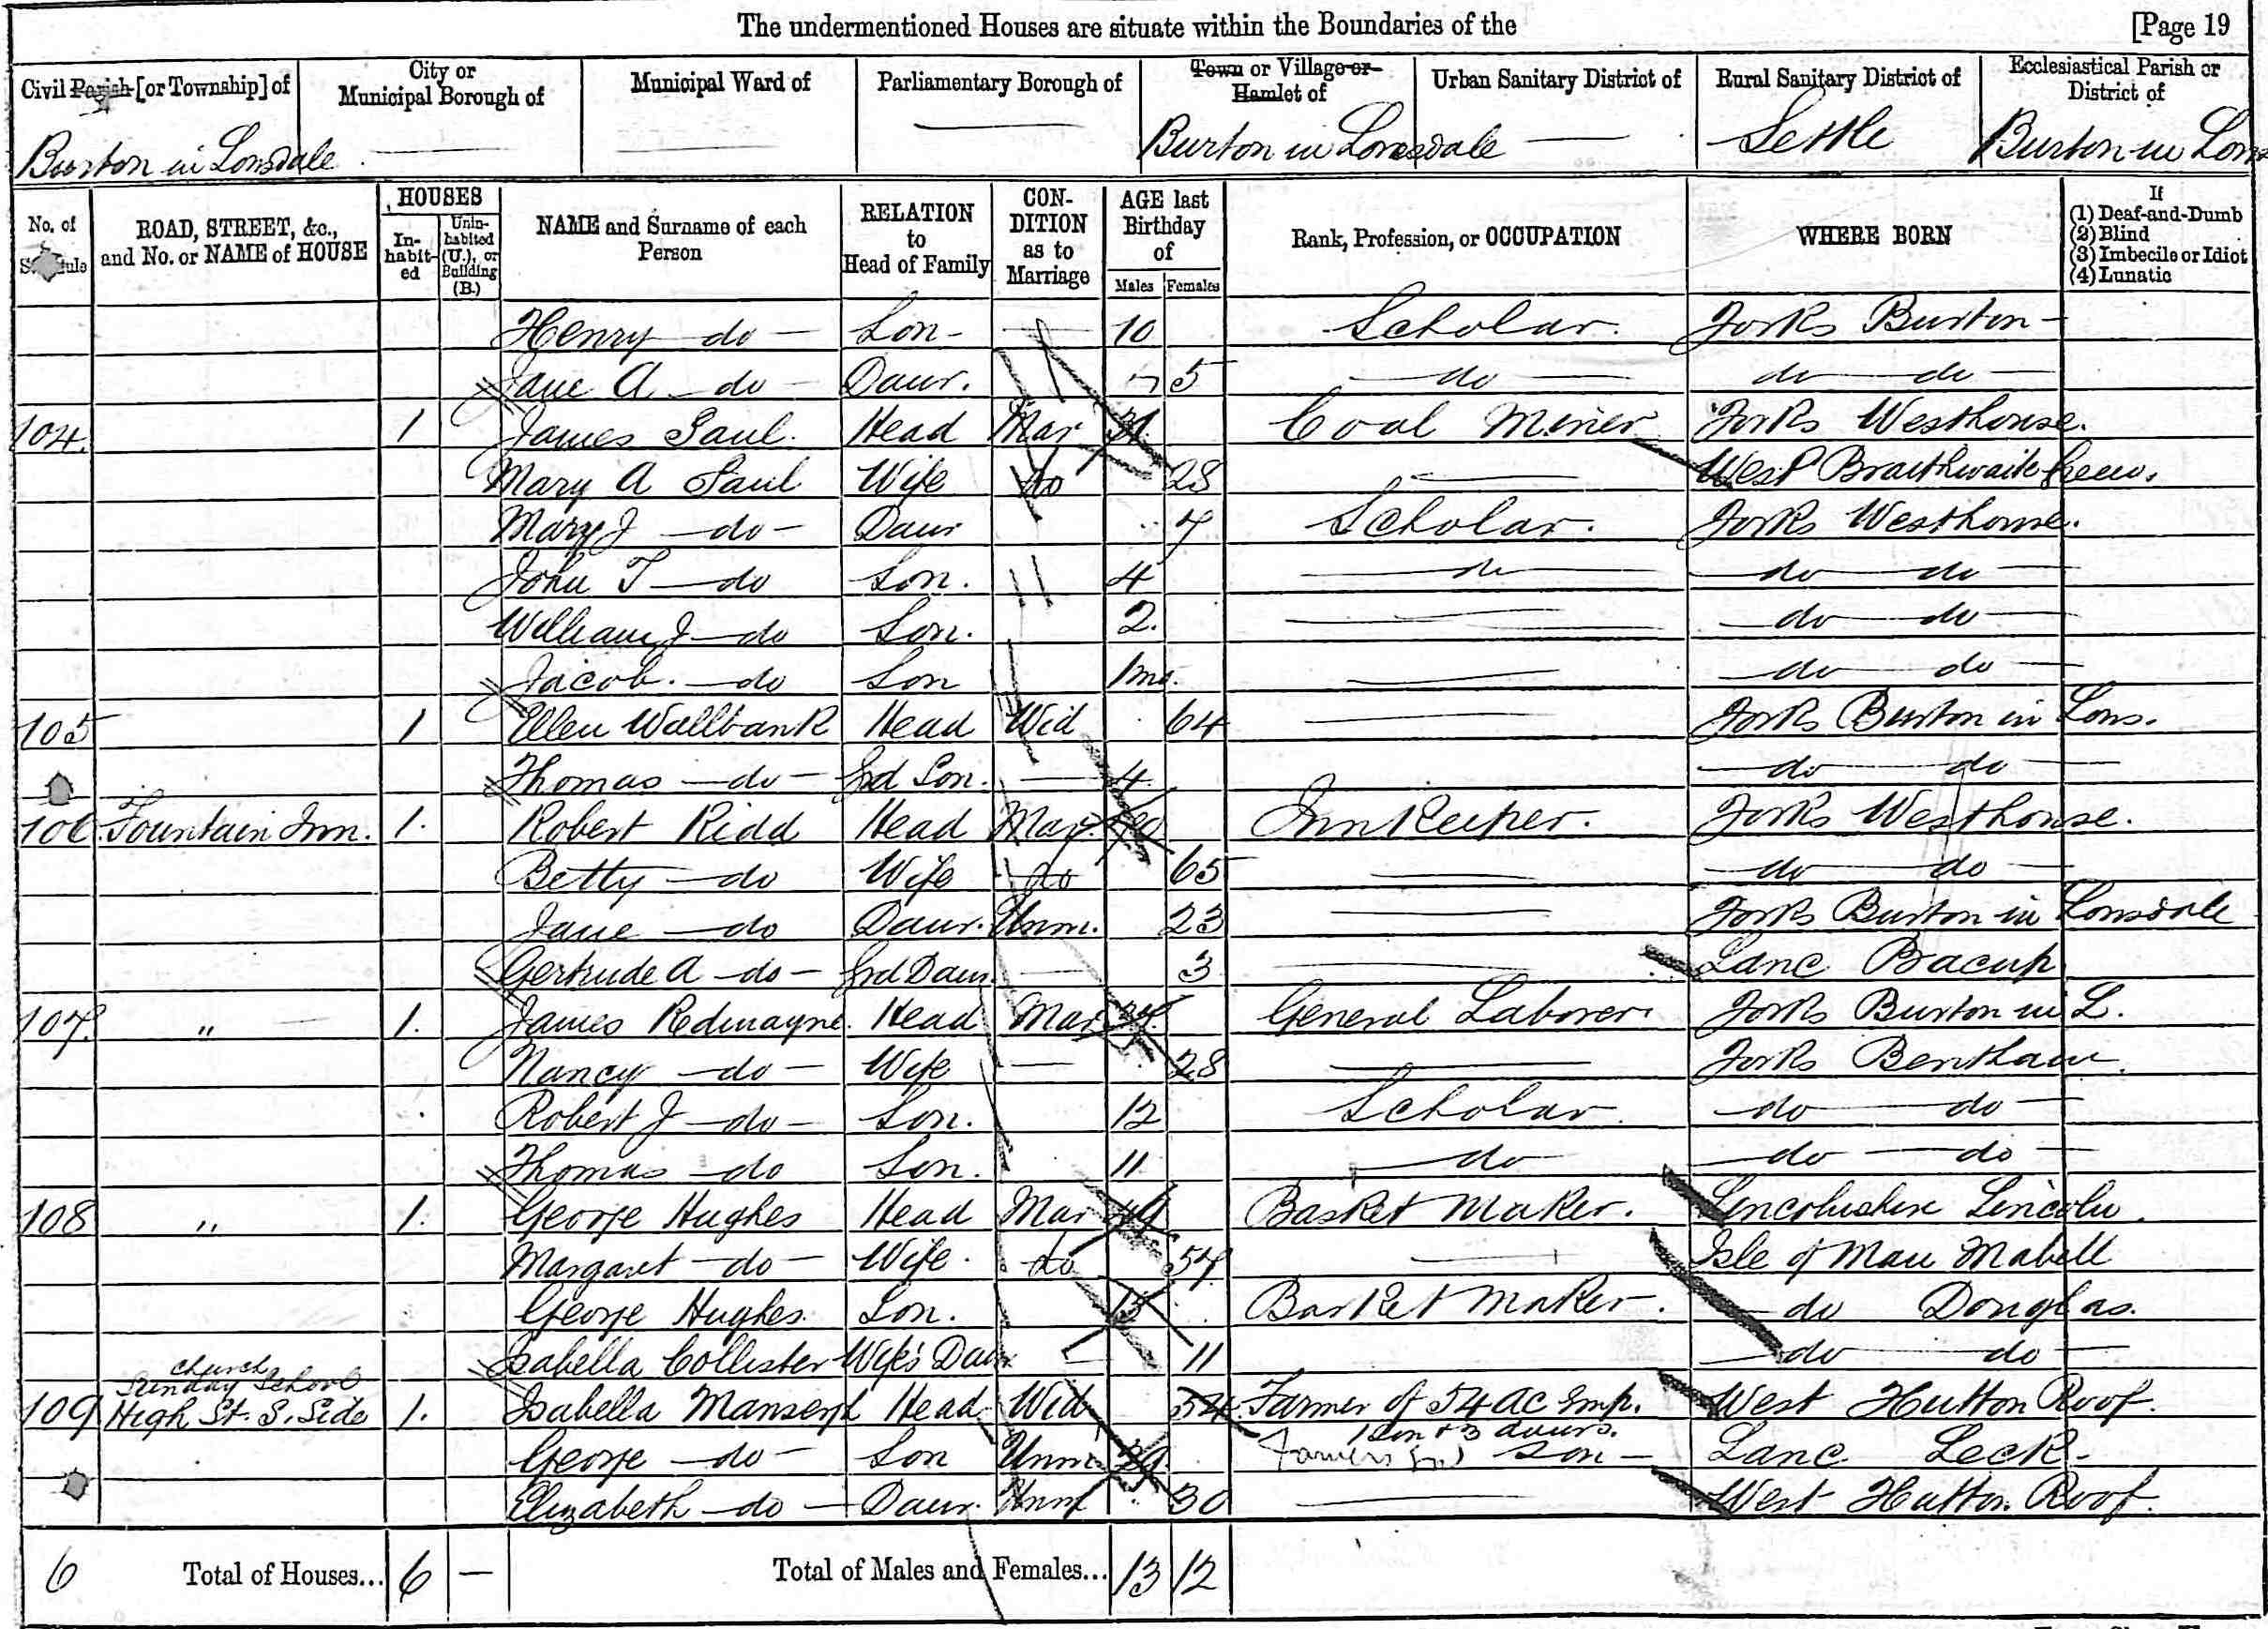 The undermentioned Houses are situate within the Boundaries of the [Page 19
Civil Parish [or Township] of City or Municipal Borough of Municipal Ward of Parliamentary Borough of Town or Village or Hamlet of Urban Sanitary District of Rural Sanitary District of Ecclesiastical Parish or District of
Burton in Lonsdale — — — Burton in Lonsdale — Settle Burton in Lons
No. of Schedule ROAD, STREET, &c., and No. or NAME of HOUSE HOUSES Inhabited Uninhabited (U.), or Building (B.) NAME and Surname of each Person RELATION to Head of Family CONDITION as to Marriage AGE last Birthday of Males Females Rank, Profession, or OCCUPATION WHERE BORN If (1) Deaf-and-Dumb (2) Blind (3) Imbecile or Idiot (4) Lunatic
Henry do Son — 10 Scholar. Yorks Burton
Jane A do Daur. 5 do do do
104. 1 James Saul. Head Mar 31 Coal Miner Yorks Westhouse.
Mary A Saul Wife do 28 — West Braithwaite
Mary J do Daur 7 Scholar. Yorks Westhouse.
John T do Son. 4 do do do
William J do Son. 2. — do do
Jacob. do Son 1mo. — do do
105 1 Ellen Wallbank Head Wid 64 — Yorks Burton in Lons.
Thomas do Grd Son. — 4 do do
106 Fountain Inn. 1. Robert Kidd Head Mar. Inn Keeper. Yorks Westhouse.
Betty do Wife do 65 — do do
Jane do Daur. Unm. 23 — Yorks Burton in Lonsdale
Gertrude A do Grd Daur. — 3 — Lanc Bacup
107. " 1. James Redmayne. Head Mar 34. General Laborer. Yorks Burton in L.
Nancy do Wife — 28 — Yorks Bentham.
Robert J do Son. 12 Scholar do do
Thomas do Son. 11 do do do
108 " 1. George Hughes Head Mar Basket Maker. Lincolnshire Lincoln.
Margaret do Wife. do 57. — Isle of Man Mabell
George Hughes. Son. Basket Maker. do Douglas.
Isabella Collister Wife's Daur — 11 do do
Church
Sunday School
109 High St. S. Side 1. Isabella Mansergh Head Wid 54 Farmer of 54 ac emp. West Hutton Roof.
1 son & 3 daurs.
George do Son Unm Farmers son Lanc Leck
Elizabeth do Daur. Unm 30 — West Hutton Roof.
6 Total of Houses... 6 — Total of Males and Females... 13 12